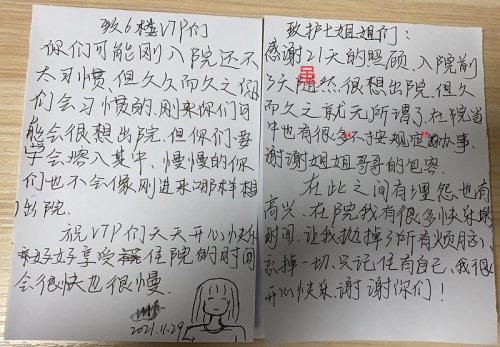 致6楼VIP们
你们可能刚入院还不
太习惯,但久久而久之你
们会习惯的,刚来你们可
能会很想出院,但你们要
学会溶入其中,慢慢的你
们也不会像刚进来那样想
出院.
祝VIP们天天开心快乐
好好享受住院的时间
会很快也很慢.
2021.11.29
致护士姐姐们:
感谢21天的照顾,入院前
3天虽然很想出院,但久
而久之就无所谓了,在院当
中也有很多不按规定办事,
谢谢姐姐哥哥的包容.
在此之间有埋怨也有
高兴,在院我有很多快乐的
时间,让我抛掉了所有烦脑
忘掉一切,只记住有自己,我很
开心快乐,谢谢你们!